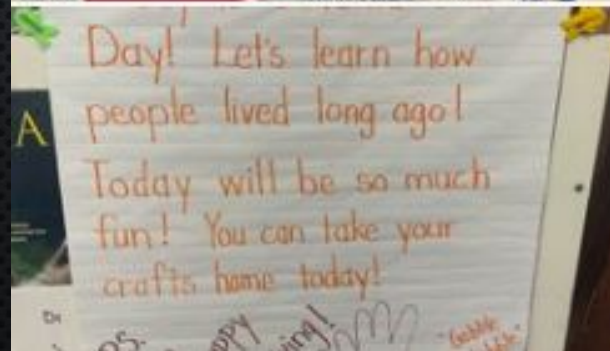 Day! Let's learn how
people lived long ago!
Today will be so much
fun! You can take your
crafts home today!
A